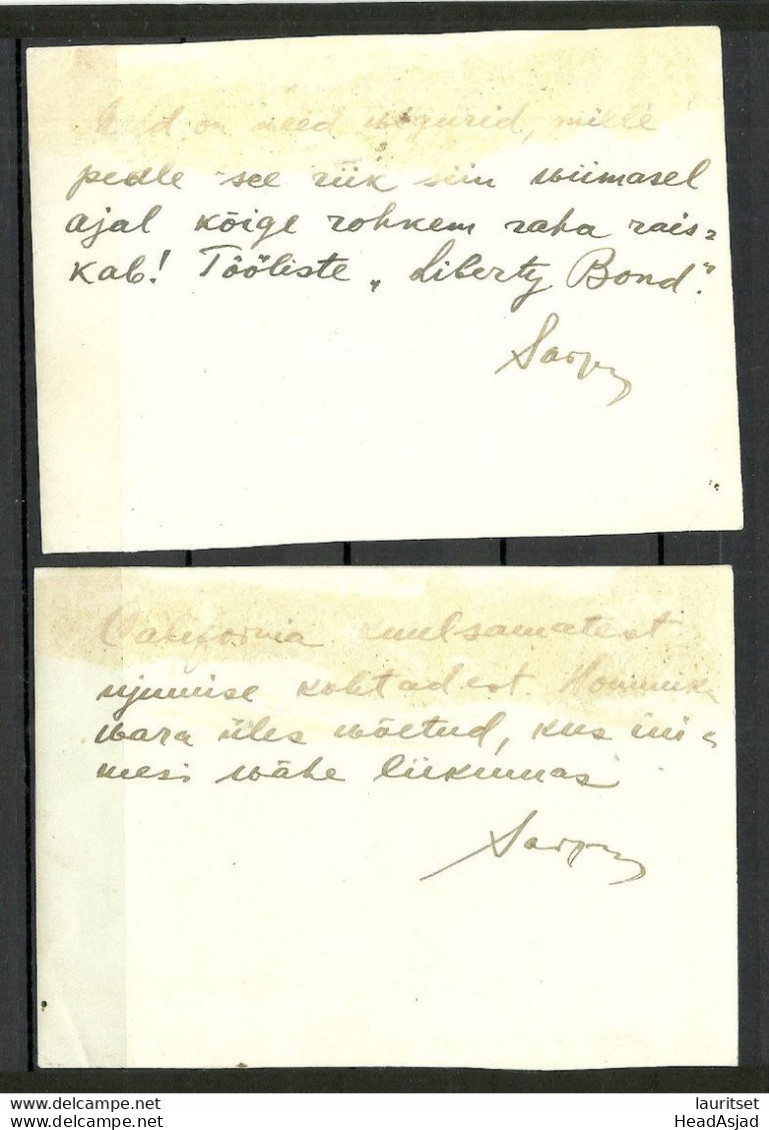 on need wigurid, mille
peale see riik siin wiimasel
ajal kõige rohkem raha rais=
kab! Tööliste „Liberty Bond."
California kuulsamatest
ujumise kohtadest. Hommiku
wara üles wõetud, kus ini=
mesi wähe liikumas
www.delcampe.net
www.delcampe.net
lauritset
HeadAsjad